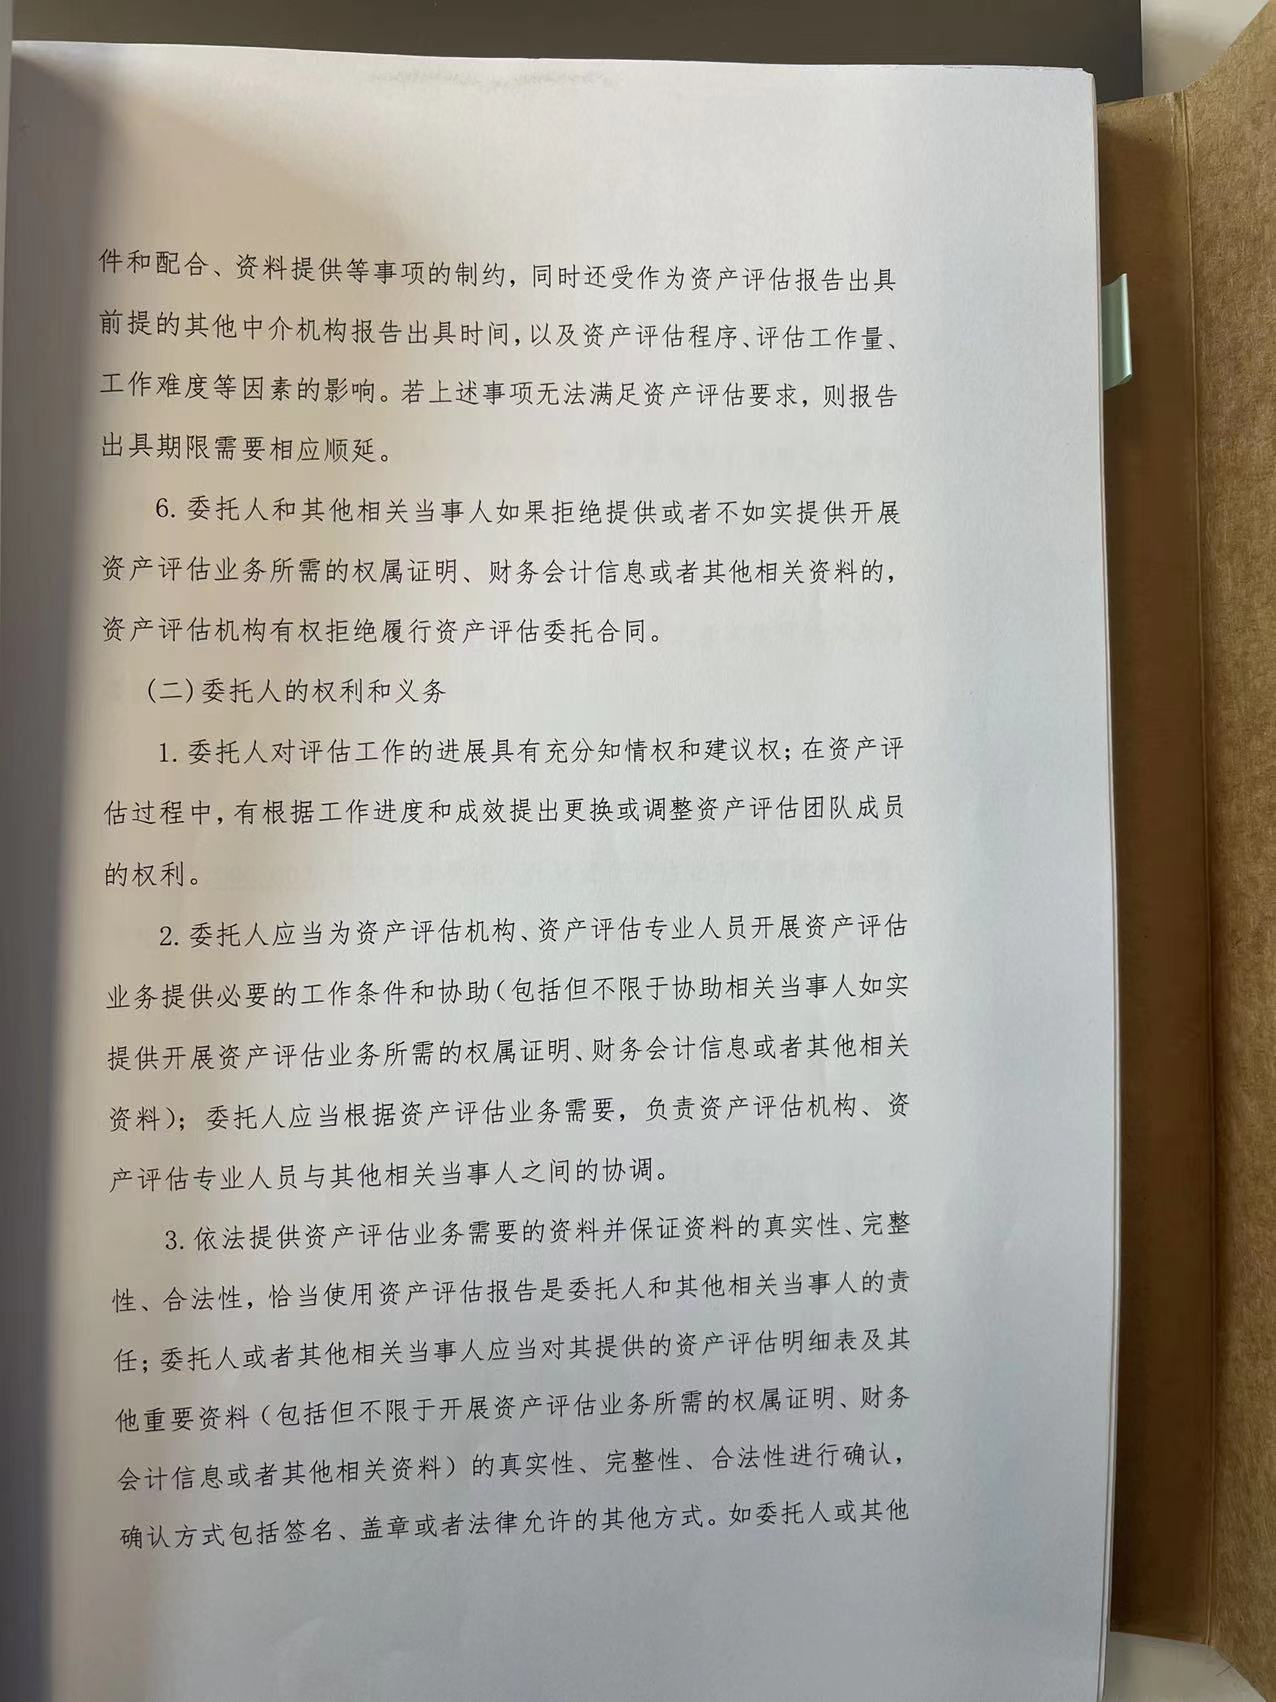 件和配合、资料提供等事项的制约，同时还受作为资产评估报告出具
前提的其他中介机构报告出具时间，以及资产评估程序、评估工作量、
工作难度等因素的影响。若上述事项无法满足资产评估要求，则报告
出具期限需要相应顺延。
6.委托人和其他相关当事人如果拒绝提供或者不如实提供开展
资产评估业务所需的权属证明、财务会计信息或者其他相关资料的，
资产评估机构有权拒绝履行资产评估委托合同。
(二)委托人的权利和义务
1.委托人对评估工作的进展具有充分知情权和建议权；在资产评
估过程中，有根据工作进度和成效提出更换或调整资产评估团队成员
的权利。
2.委托人应当为资产评估机构、资产评估专业人员开展资产评估
业务提供必要的工作条件和协助（包括但不限于协助相关当事人如实
提供开展资产评估业务所需的权属证明、财务会计信息或者其他相关
资料）；委托人应当根据资产评估业务需要，负责资产评估机构、资
产评估专业人员与其他相关当事人之间的协调。
3.依法提供资产评估业务需要的资料并保证资料的真实性、完整
性、合法性，恰当使用资产评估报告是委托人和其他相关当事人的责
任；委托人或者其他相关当事人应当对其提供的资产评估明细表及其
他重要资料（包括但不限于开展资产评估业务所需的权属证明、财务
会计信息或者其他相关资料）的真实性、完整性、合法性进行确认，
确认方式包括签名、盖章或者法律允许的其他方式。如委托人或其他